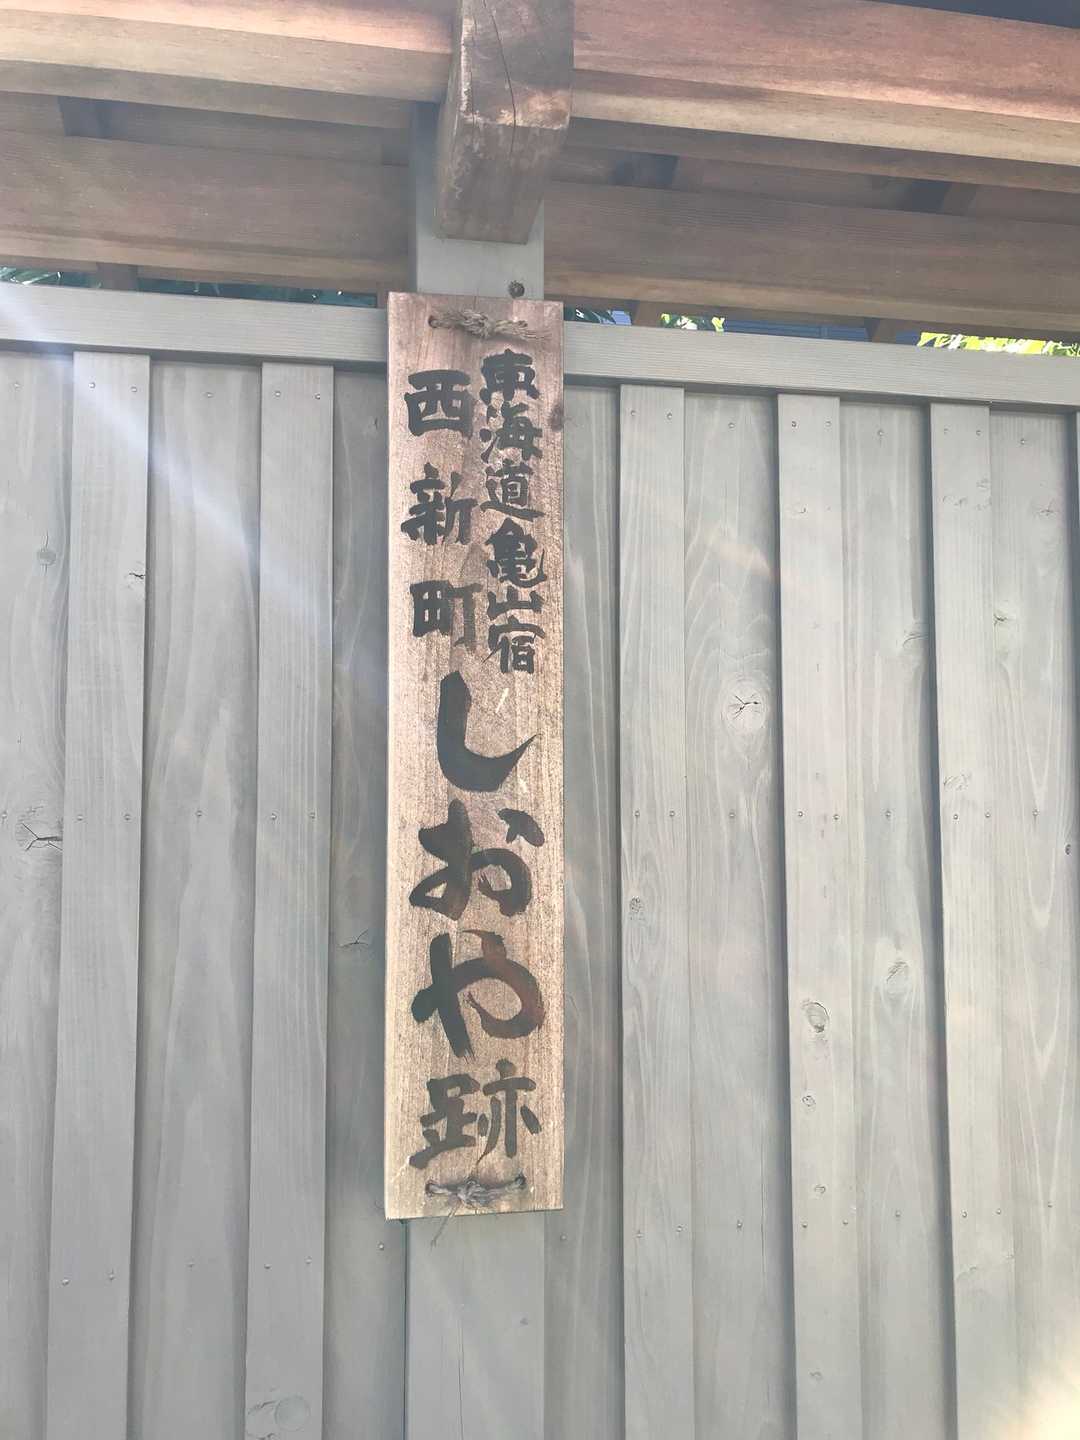 東海道亀山宿
西新町
しおや跡